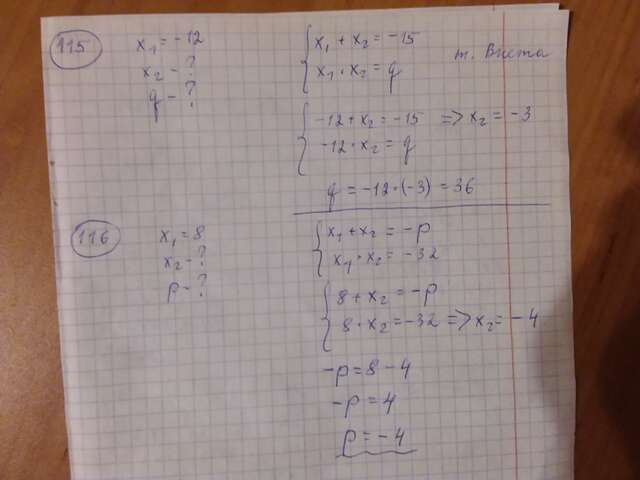 115
x₁ = -12
x₂ - ?
q - ?
{ x₁ + x₂ = -15
x₁ · x₂ = q
т. Виета
{ -12 + x₂ = -15 => x₂ = -3
-12 · x₂ = q
q = -12 · (-3) = 36
116
x₁ = 8
x₂ - ?
p - ?
{ x₁ + x₂ = -p
x₁ · x₂ = -32
{ 8 + x₂ = -p
8 · x₂ = -32 => x₂ = -4
-p = 8 - 4
-p = 4
p = -4